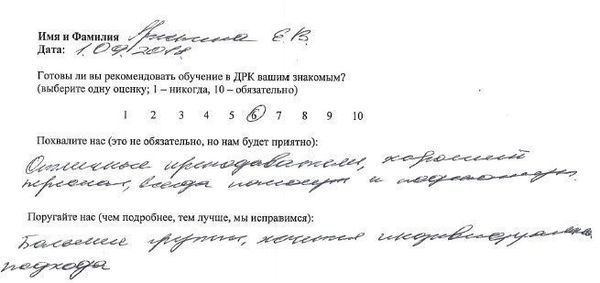 Имя и Фамилия Е.В.
Дата: 1.09.2018
Готовы ли вы рекомендовать обучение в ДРК вашим знакомым?
(выберите одну оценку; 1 – никогда, 10 – обязательно)
1 2 3 4 5 6 7 8 9 10
Похвалите нас (это не обязательно, но нам будет приятно):
Отличные преподаватели, хороший
персонал, всегда помогут и
Поругайте нас (чем подробнее, тем лучше, мы исправимся):
Большие группы, хочется индивидуального
подхода